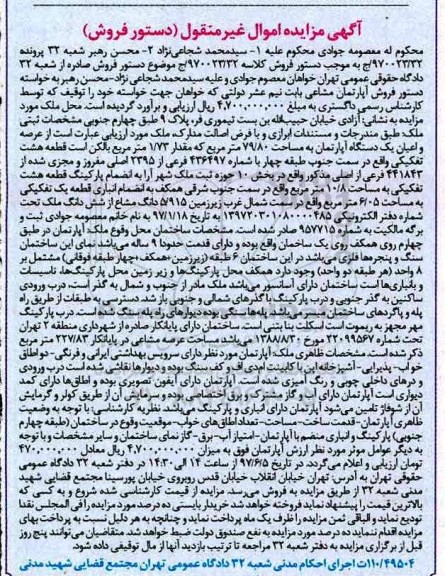 آگهی مزایده اموال غیر منقول (دستور فروش)
محکوم له معصومه جوادی محکوم علیه ۱- سیدمحمد شجاعی‌نژاد ۲- محسن رهبر شعبه ۳۲ پرونده
۹۷۰۰۲۳/۳۲/ج به موجب دستور فروش کلاسه ۹۷۰۰۲۳/۳۲/ج موضوع دستور فروش صادره از شعبه ۳۲
دادگاه حقوقی عمومی تهران خواهان معصوم جوادی و علیه سیدمحمد شجاعی نژاد-محسن رهبر به خواسته
دستور فروش آپارتمان مشاعی بابت نیم عشر دولتی که خواهان جهت خواسته خود را توقیف که توسط
کارشناس رسمی دادگستری به مبلغ ۴,۷۰۰,۰۰۰,۰۰۰ ریال ارزیابی و برآورد گردیده است. محل ملک مورد
مزایده به نشانی: آزادی خیابان حبیب‌الله بن بست تیموری فر، پلاک ۹ طبق چهارم جنوبی مشخصات ثبتی
ملک: طبق مندرجات و مستندات ابرازی و با فرض اصالت مدارک، ملک مورد ارزیابی عبارت است از عرصه
و اعیان یک دستگاه آپارتمان به مساحت ۷۹/۸۰ متر مربع که مقدار ۱/۷۳ متر مربع بالکن است قطعه هشت
تفکیکی واقع در سمت جنوب طبقه چهار با شماره ۴۳۶۴۹۷ فرعی از ۲۳۹۵ اصلی مفروز و مجزی شده از
۴۴۱۸۴۳ فرعی از اصلی مذکور واقع در بخش ۱۰ حوزه ثبت ملک شهر آرا به انضمام پارکینگ قطعه هشت
تفکیکی به مساحت ۱۰/۸ متر مربع واقع در سمت جنوب شرقی همکف به انضمام انباری قطعه یک تفکیکی
به مساحت ۶/۰۵ متر مربع واقع در سمت شمال غرب زیرزمین ۵/۹۱۵ دانگ مشاع از شش دانگ ملک تحت
شماره دفتر الکترونیکی ۱۳۹۷۲۰۳۰۱۰۸۰۰۰۰۴۸۵ به تاریخ ۹۷/۱/۱۸ به نام خانم معصومه جوادی ثبت و
برگه مالکیت به شماره ۹۵۷۷۱۵ صادر شده است. مشخصات ساختمان محل وقوع ملک: آپارتمان در طبق
چهارم روی همکف از یک ساختمان واقع بوده و دارای قدمت حدودا ۹ ساله می‌باشد نمای این ساختمان
سنگ و پنجره‌ها فلزی می‌باشد در این ساختمان ۶ طبقه (زیرزمین-همکف-چهار طبقه فوقانی) مشتمل بر
۸ واحد (هر طبقه دو واحد) وجود دارد همکف محل پارکینگ‌ها و زیر زمین محل پارکینگ‌ها، تاسیسات
و انباری‌ها است ساختمان دارای آسانسور می‌باشد ملک مادر از جنوب و شمال به گذر است، درب ورودی
ساکنین به گذر جنوبی و درب پارکینگ با گذرهای شمالی و جنوبی باز شد. دسترسی به طبقات از طریق راه
پله و پاگردهای ساختمان میسر می‌باشد پله‌ها سنگی بوده دیوارهای راه پله سنگ شده است. درب پارکینگ
مهر مجهز به ریموت است اسکلت بنا بتنی است. ساختمان دارای پایانکار صادره از شهرداری منطقه ۲ تهران
تحت شماره ۲۲۰۹۹۵۶۷ مورخ ۱۳۸۸/۸/۳۰ می‌باشد مساحت عرصه مشاعی در پایانکار ۲۲۷/۸۳ متر مربع
ذکر شده است. مشخصات ظاهری ملک: آپارتمان مورد نظر دارای سرویس بهداشتی ایرانی و فرنگی- دو اطاق
خواب- پذیرایی- آشپزخانه اپن با کابینت ام‌دی‌اف و کف سنگ بوده و دیوارها نقاشی شده است درب ورودی
و درهای داخلی چوبی و رنگ آمیزی شده است. آپارتمان دارای آیفون تصویری بوده و اطاق‌ها دارای کمد
دیواری است آپارتمان دارای آب و گاز مشترک و برق اختصاصی بوده و سرمایش آن از طریق کولر و گرمایش
آن از شوفاژ تامین می‌شود آپارتمان دارای انباری و پارکینگ می‌باشد. نظریه کارشناسی: با توجه به وضعیت
ظاهری آپارتمان-قدمت ساخت-مساحت-تعداد اطاق‌های خواب-موقعیت وقوع در ساختمان (طبقه چهارم
جنوبی) پارکینگ و انباری منضم با آپارتمان-امتیاز آب-برق-گاز نمای ساختمان و سایر مشخصات و با توجه
به دیگر عوامل موثر مورد نظر ارزش آپارتمان فوق به میزان ۴,۷۰۰,۰۰۰,۰۰۰ ریال معادل ۴۷۰,۰۰۰,۰۰۰
تومان ارزیابی و اعلام می‌گردد. در تاریخ ۹۷/۶/۵ از ساعت ۱۴ الی ۱۴:۳۰ در دفتر شعبه ۳۲ دادگاه عمومی
حقوقی تهران به آدرس: تهران خیابان انقلاب خیابان قدس روبروی خیابان پورسینا مجتمع قضایی شهید
مدنی شعبه ۳۲ از طریق مزایده به فروش می‌رسد. مزایده از قیمت کارشناسی شده شروع و به کسی که
بالاترین قیمت را پیشنهاد نماید فروخته خواهد شد خریدار بایستی ده درصد مورد مزایده را فی المجلس نقدا
تودیع نماید و الباقی ثمن مزایده را ظرف یک ماه پرداخت نماید و چنانچه به هر دلیل نسبت به پرداخت بهای
مزایده اقدام ننماید ده درصد مورد مزایده به نفع صندوق دولت ضبط خواهد شد. متقاضیان می‌توانند پنج روز
قبل از برگزاری مزایده به دفتر شعبه ۳۲ مراجعه تا ترتیب بازدید آنها از مال توقیفی داده شود.
۱۱۰/۴۹۵۰۴/ت اجرای احکام مدنی شعبه ۳۲ دادگاه عمومی تهران مجتمع قضایی شهید مدنی